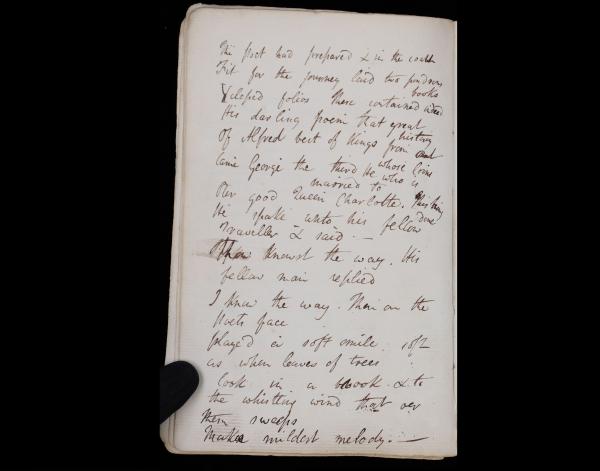 The Poet had prepared & in the coach
Fit for the journey laid two pondrous books
Ycleped folios these contained indeed
His darling poem that great history
Of Alfred best of Kings from whose loins
came George the third He who is
married to
Our good Queen Charlotte. This being done
He spake unto his fellow
Traveller & said —
Thou knowst the way. His
fellow man replied
I know the way. Then on the
Poets face
played a soft smile soft
as when leaves of trees
look in a brook & to
the whistling wind that oer
them sweeps
Make mildest melody. —